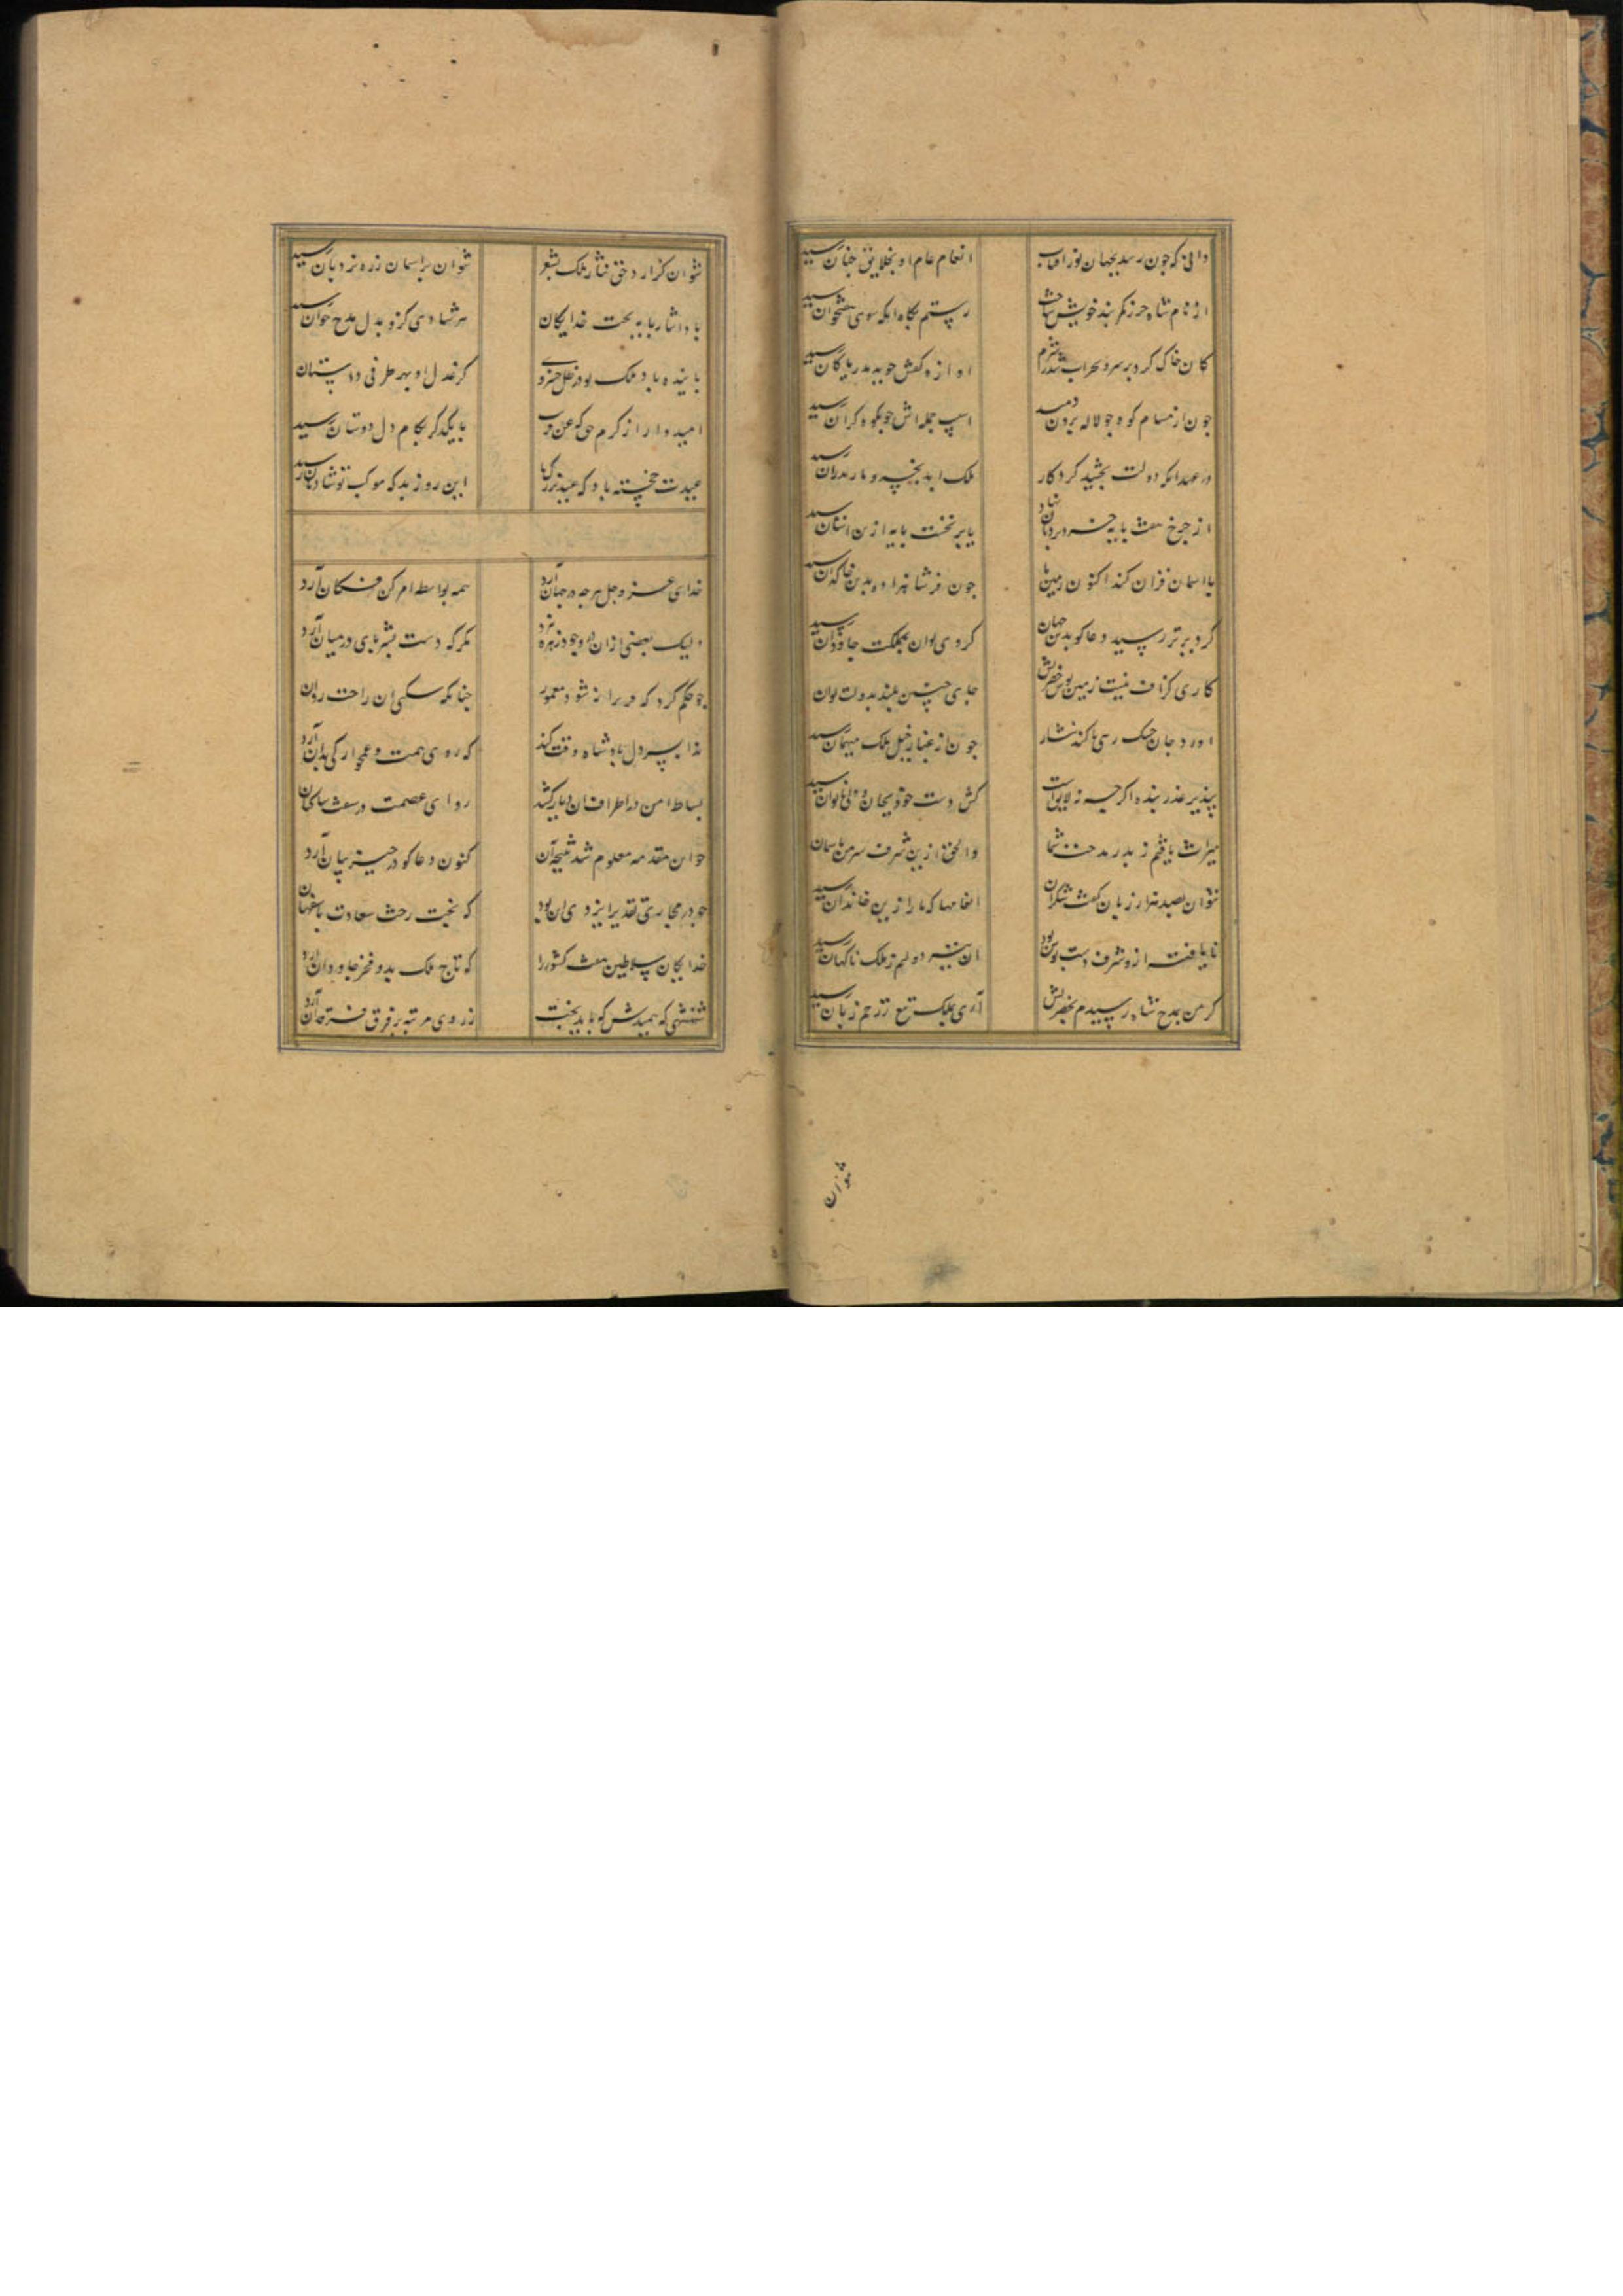 دانی که چون رسد بجهان نور افتاب انعام عام او بخلایق چنان رسید
از نام شاه حرز کمر بند خویش ساخت رستم بگاه انکه سوی هفتخوان رسید
کان خاک کرد بر سر و بحر اب شد ز شرم اوازه کفش چو بدریا و کان رسید
چون از مسام کوه چو لاله برون دمید اسیب حمله اش چو بکوه کران رسید
در عهد انکه دولت بخشید کردکار ملک
از چرخ هفت پایه نهاد پایه ازین
با اسمان قران کند اکنون زمین ما چون فر شاه بدین خاکدان رسید
کرد برتر رسید دعاکو بدین جهان کر وی توان بمملکت جاودان رسید
کاری کزاف نیست زمین بوس حضرتش جای چنین بلند بدولت توان رسید
اورد جان خشک رهی تا کند نثار چون از عنان خیل ملک میهمان رسید
بپذیر عذر بنده اکرچه نه لایق است کش دست
میراث یافتم ز پدر مدحت شما والحق ازین شرف سر من باسمان رسید
نتوان بصد هزار زبان گفت شکر ان انعامها که ما را ازین خاندان رسید
نایافته از و شرف دست بوس بود این نیز دولتم ز ملک ناکهان رسید
کر من بمدح شاه رسیدم بحضرتش آری بملک تیغ ز زخم زبان رسید
نتوان
نتوان کزارد حق نثار ملک بشعر نتوان بر اسمان ز ره نردبان رسید
بادا نثار پایه تخت خدایکان هر شادی کزو بدل مدح خوان رسید
پاینده باد ملک تو در ظل خسروی کز عدل او بهر طرفی داستان رسید
امیدوار از کرم حق که عن قریب با یکدگر بکام دل دوستان رسید
عیدت خجسته باد که عید بزرک ما این روز بد که موکب تو شادمان رسید
خدای عز و جل هرچه در جهان آرد همه بواسطه امر کن فکان آرد
ولیک بعضی از ان در وجود مکر که دست بشر پای در میان آرد
چو حکم کرد که ویرانه شود معمور چنانکه سکنی ان راحت روان آرد
ندا بسر دل پادشاه وقت کند که روی همت و غمخوارکی بدان آرد
بساط امن در اطراف ان دیار کشد ردای عصمت در سفت ساکنان آرد
چو این مقدمه معلوم شد نتیجه آن کنون دعاکو در حیز بیان آرد
چو در مجاری تقدیر ایزدی ان بود که بخت رخت سعادت باصفهان آرد
خدایکان سلاطین هفت کشور را که تاج ملک بدو فخر جاودان آرد
شهنشهی که نهیبش کو پای تخت ز روی مرتبه بر فرق فرقدان آرد